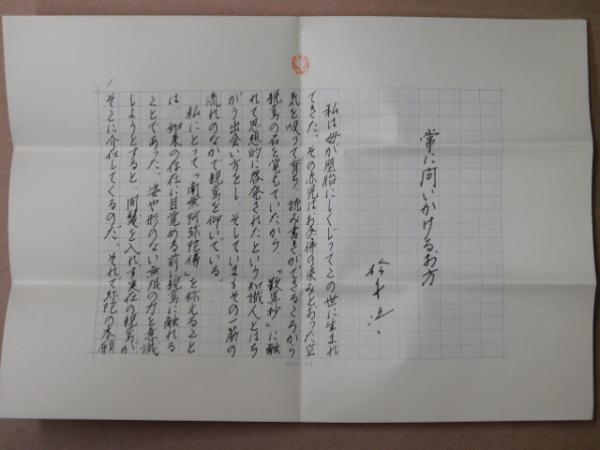 常に問いかけるお方
私は母が堕胎にしくじってこの世に生まれ
てきた。その赤児はお念佛の染みとおった空
気を吸って育ち、読み書きができるころから
親鸞の名を覚えていたから、『歎異抄』に触
れて思想的に啓発されたという知識人とはち
がう出会い方をし、そしていまもその一筋の
流れのなかで親鸞を仰いでいる。
私にとって「南無阿弥陀佛」を称えること
は、如来の存在に目覚める前に親鸞に触れる
ことであった。姿や形のない無限の力と意識
しようとすると、間髪を入れず実在の親鸞が
そこに介在してくるのだ。それで弥陀の本願